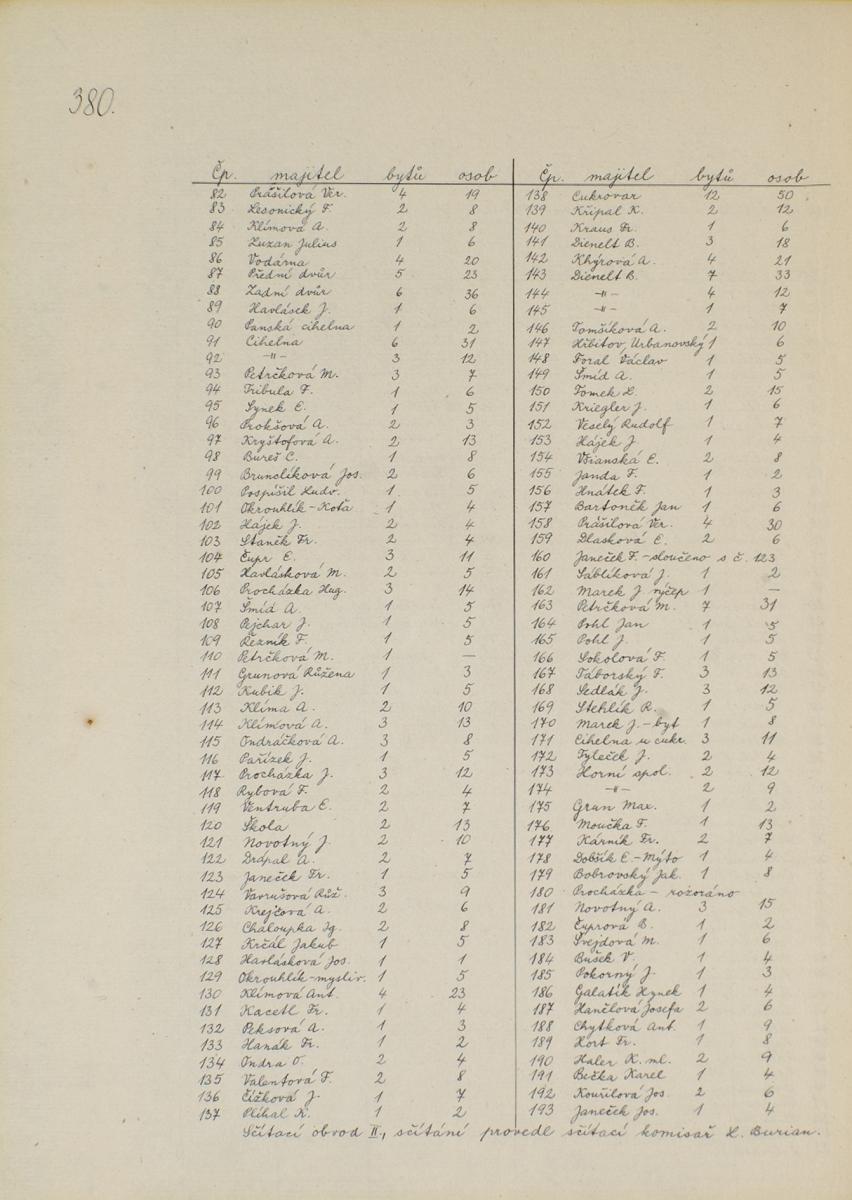 380.
Čp. majitel bytů osob
82 Prášilová Ver. 4 19
83 Lesonický F. 2 8
84 Klímová A. 2 8
85 Luzan Julius 1 6
86 Vodárna 4 20
87 Přední dvůr 5 23
88 Zadní dvůr 6 36
89 Havlásek J. 1 6
90 Panská cihelna 1 2
91 Cihelna 6 31
92 -"- 3 12
93 Petrčková M. 3 7
94 Tribula F. 1 6
95 Synek E. 1 5
96 Prokšová A. 2 3
97 Kryštofová A. 2 13
98 Bureš C. 1 8
99 Brunclíková Jos. 2 6
100 Pospíšil Ludv. 1 5
101 Okrouhlík-Koťa 1 4
102 Hájek J. 2 4
103 Staněk Fr. 2 4
104 Čupr E. 3 11
105 Havlásková M. 2 5
106 Procházka Hug. 3 14
107 Šmíd A. 1 5
108 Pejchar J. 1 5
109 Řezník F. 1 5
110 Petrčková M. 1 —
111 Grunová Růžena 1 3
112 Kubík J. 1 5
113 Klíma A. 2 10
114 Klímová A. 3 13
115 Ondráčková A. 3 8
116 Pařízek J. 1 5
117 Procházka J. 3 12
118 Rybová F. 2 4
119 Ventruba E. 2 7
120 Škola 2 13
121 Novotný J. 2 10
122 Drápal A. 2 7
123 Janeček Fr. 1 5
124 Vavrušová Růž. 3 9
125 Krejčová A. 2 6
126 Chaloupka Ig. 2 8
127 Krčál Jakub 1 5
128 Havlásková Jos. 1 1
129 Okrouhlík-mysliv. 1 5
130 Klímová Ant. 4 23
131 Kacetl Fr. 1 4
132 Peksová A. 1 3
133 Hanák Fr. 1 2
134 Ondra O. 2 4
135 Valentová F. 2 8
136 Čížková J. 1 7
137 Plíhal K. 1 2
Čp. majitel bytů osob
138 Cukrovar 12 50
139 Křipal K. 2 12
140 Kraus Fr. 1 6
141 Dienelt B. 3 18
142 Khýrová A. 4 21
143 Dienelt B. 7 33
144 -"- 4 12
145 -"- 1 7
146 Tomšíková A. 2 10
147 Hřbitov, Urbanovský 1 6
148 Foral Václav 1 5
149 Šmíd A. 1 5
150 Tomek L. 2 15
151 Kriegler J. 1 6
152 Veselý Rudolf 1 7
153 Hájek J. 1 4
154 Všianská E. 2 8
155 Janda F. 1 2
156 Hnátek F. 1 3
157 Bartoněk Jan 1 6
158 Prášilová Ver. 4 30
159 Dlasková E. 2 6
160 Janeček F. - sloučeno s č. 123
161 Sáblíková J. 1 2
162 Marek J. výčep 1 —
163 Petrčková M. 7 31
164 Pohl Jan 1 5
165 Pohl J. 1 5
166 Sokolová F. 1 5
167 Táborský F. 3 13
168 Sedlák J. 3 12
169 Stehlík R. 1 5
170 Marek J. - byt 1 8
171 Cihelna u cukr. 3 11
172 Tyleček J. 2 4
173 Horní spol. 2 12
174 -"- 2 9
175 Grun Max. 1 2
176 Moučka F. 1 13
177 Kárník Fr. 2 7
178 Dobšík E. - Mýto 1 4
179 Bobrovský Jak. 1 8
180 Procházka - rozoráno
181 Novotný A. 3 15
182 Čuprová B. 1 2
183 Švejdová M. 1 6
184 Bušek V. 1 4
185 Pokorný J. 1 3
186 Galatík Hynek 1 4
187 Hančlová Josefa 2 6
188 Chytková Ant. 1 9
189 Hort Fr. 1 8
190 Haler K. ml. 2 9
191 Bečka Karel 1 4
192 Kouřilová Jos. 2 6
193 Janeček Jos. 1 4
Sčítací obvod II., sčítání provedl sčítací komisař L. Burian.